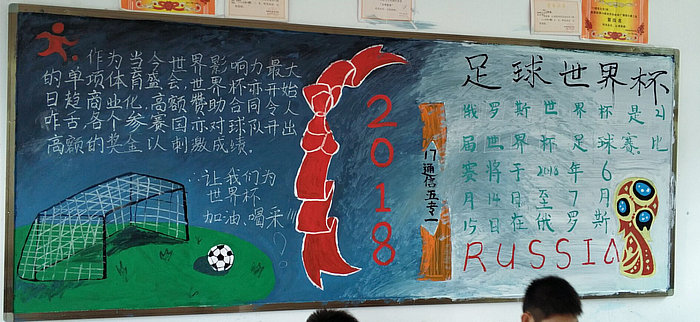 作为当今世界影响力最大
的单项体育盛会世界杯亦开始
日趋商业化.高额赞助合同令人
咋舌各个参赛国亦对球队开出
高额的奖金以刺激成绩.
∴让我们为
世界杯
加油、喝采!!!
2018
17通信五专一
足球世界杯
俄罗斯世界杯是21
届世界杯足球赛.比
赛将于2018年6
月14日至7月
15日在俄罗斯
RUSSIA